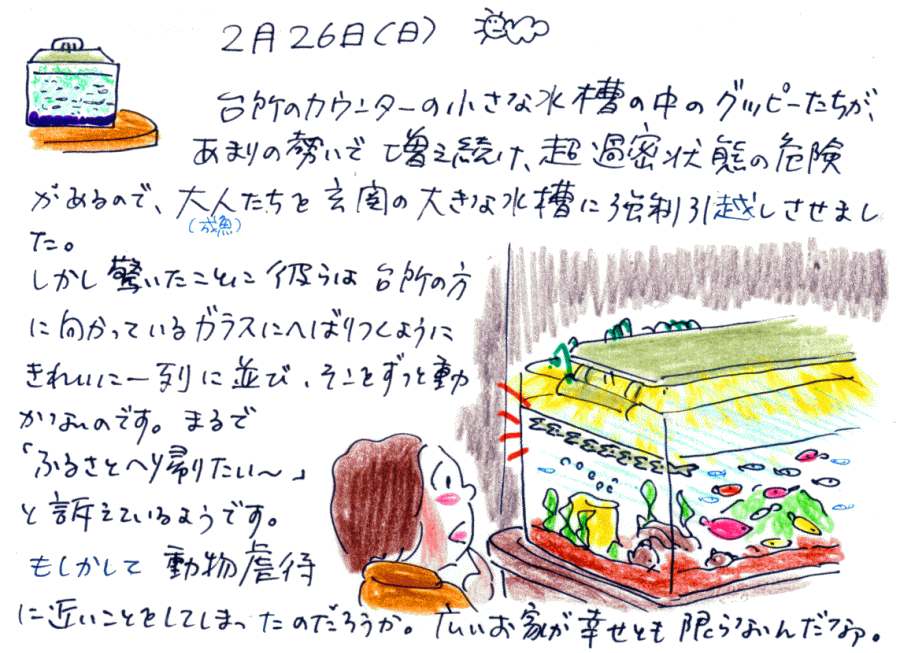 2月26日(日)
台所のカウンターの小さな水槽の中のグッピーたちが、
あまりの勢いで増え続け、超過密状態の危険
があるので、大人たちを玄関の大きな水槽に強制引越しさせまし
(成魚)
た。
しかし驚いたことに彼らは台所の方
に向かっているガラスにへばりつくように
きれいに一列に並び、そこをずっと動
かないのです。まるで
「ふるさとへり帰りたい〜」
と訴えているようです。
もしかして動物虐待
に近いことをしてしまったのだろうか。広いお家が幸せとも限らないんだなァ。